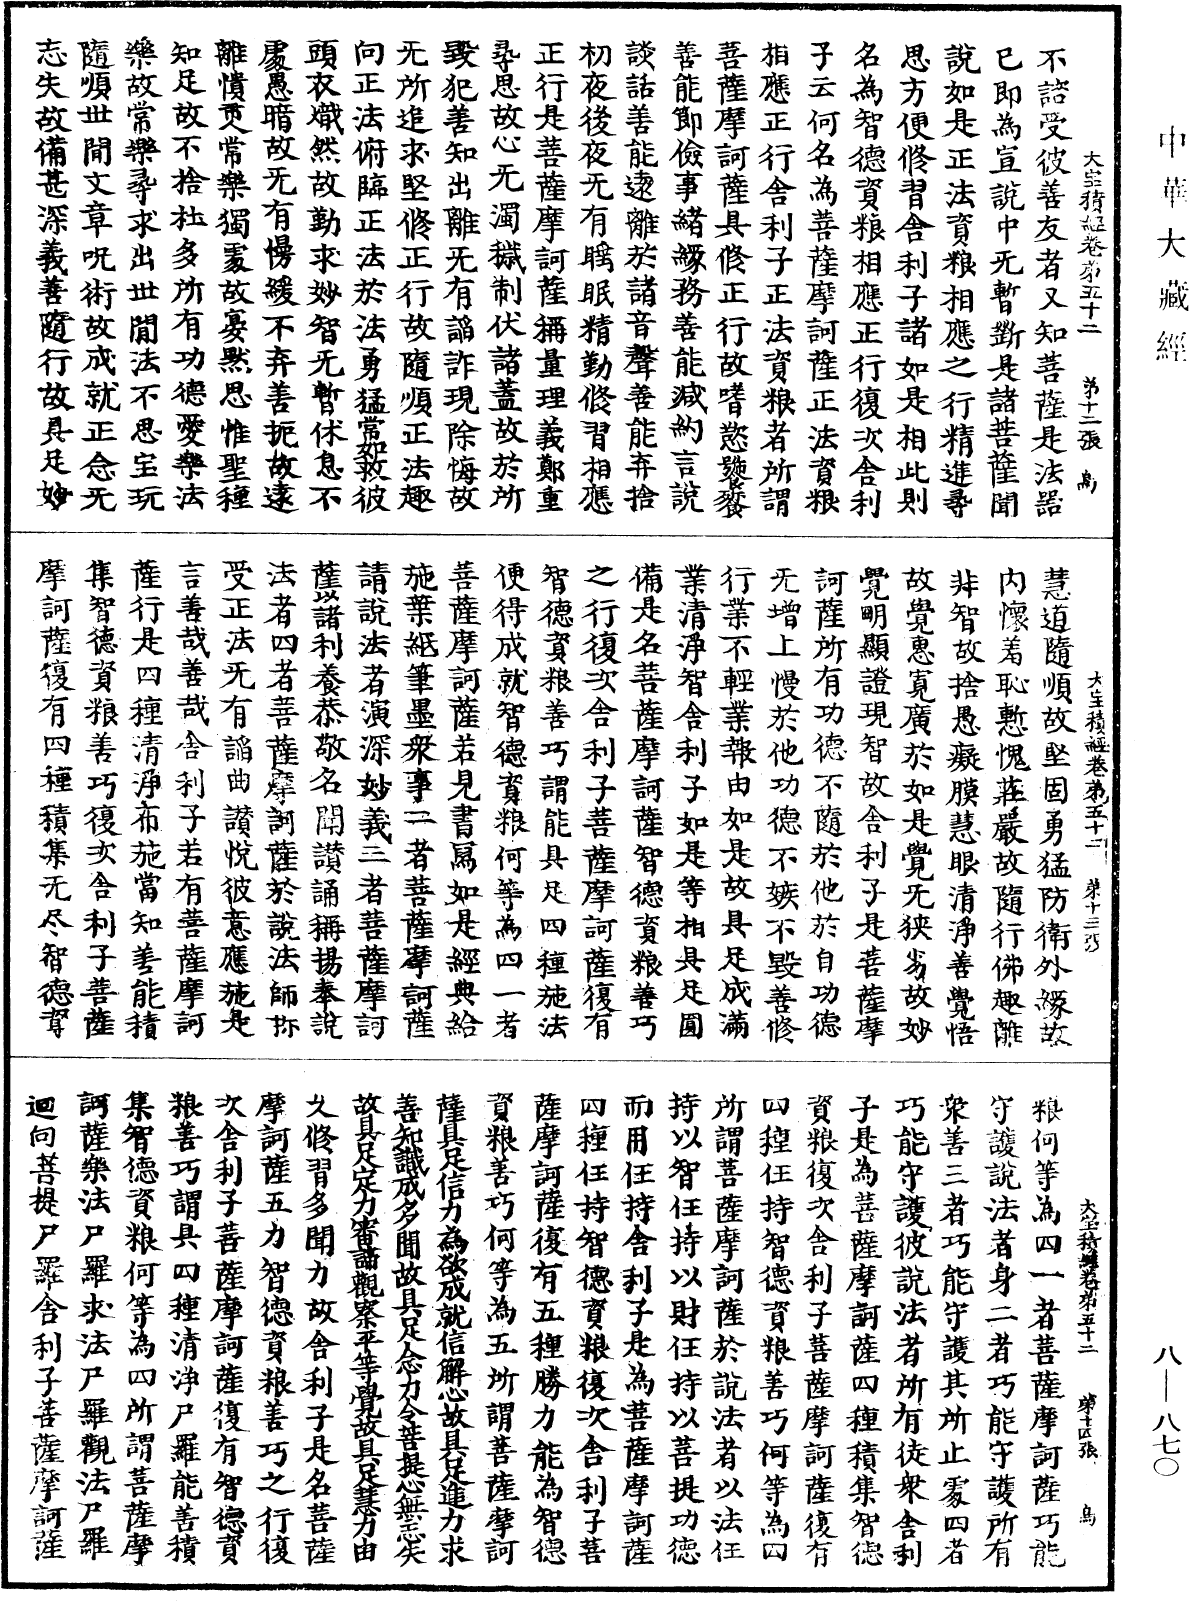 中華大藏經
大宝積經卷第五十二 第十二張 鳥
不諮受彼善友者又知菩薩是法器
已即為宣說中无暫斷是諸菩薩聞
說如是正法資粮相應之行精進尋
思方便修習舍利子諸如是相此則
名為智德資粮相應正行復次舍利
子云何名為菩薩摩訶薩正法資粮
相應正行舍利子正法資粮者所謂
菩薩摩訶薩具修正行故嗜慾饕餮
善能節儉事緒緣務善能減約言說
談話善能遠離於諸音聲善能弃捨
初夜後夜无有睡眠精勤修習相應
正行是菩薩摩訶薩稱量理義鄭重
尋思故心无濁穢制伏諸蓋故於所
毀犯善知出離无有諂詐現除悔故
无所追求堅修正行故隨順正法趣
向正法俯臨正法於法勇猛常如救彼
頭衣熾然故勤求妙智无暫休息不
處愚暗故无有慢緩不弃善扼故遠
離憒丙常樂獨處故宴默思惟聖種
知足故不捨杜多所有功德愛樂法
樂故常樂尋求出世間法不思宝玩
隨順世間文章呪術故成就正念无
志失故備甚深義善隨行故具足妙
大宝積經卷第五十二 第十三張
慧道隨順故堅固勇猛防衛外緣故
內懷羞恥慙愧莊嚴故隨行佛趣離
非智故捨愚癡膜慧眼清淨善覺悟
故覺惠寬廣於如是覺无狹劣故妙
覺明顯證現智故舍利子是菩薩摩
訶薩所有功德不隨於他於自功德
无增上慢於他功德不嫉不毀善修
行業不輕業報由如是故具足成滿
業清淨智舍利子如是等相具足圓
備是名菩薩摩訶薩智德資粮善巧
之行復次舍利子菩薩摩訶薩復有
智德資粮善巧謂能具足四種施法
便得成就智德資粮何等為四一者
菩薩摩訶薩若見書寫如是經典給
施葉紙筆墨衆事二者菩薩摩訶薩
請說法者演深妙義三者菩薩摩訶
薩以諸利養恭敬名聞讚誦稱揚奉說
法者四者菩薩摩訶薩於說法師弥
受正法无有諂曲讚悅彼意應施是
言善哉善哉舍利子若有菩薩摩訶
薩行是四種清淨布施當知善能積
集智德資粮善巧復次舍利子菩薩
摩訶薩復有四種積集无尽智德資
大宝積經卷第五十二 第十四張 鳥
粮何等為四一者菩薩摩訶薩巧能
守護說法者身二者巧能守護所有
衆善三者巧能守護其所止處四者
巧能守護彼說法者所有徒衆舍利
子是為菩薩摩訶薩四種積集智德
資粮復次舍利子菩薩摩訶薩復有
四種任持智德資粮善巧何等為四
所謂菩薩摩訶薩於說法者以法任
持以智任持以財任持以菩提功德
而用任持舍利子是為菩薩摩訶薩
四種任持智德資粮復次舍利子菩
薩摩訶薩復有五種勝力能為智德
資粮善巧何等為五所謂菩薩摩訶
薩具足信力為欲成就信解心故具足進力求
善知識成多聞故具足念力令菩提心無忘失
故具足定力審諦觀察平等覺故具足慧力由
久修習多聞力故舍利子是名菩薩
摩訶薩五力智德資粮善巧之行復
次舍利子菩薩摩訶薩復有智德資
粮善巧謂具四種清淨尸羅能善積
集智德資粮何等為四所謂菩薩摩
訶薩樂法尸羅求法尸羅觀法尸羅
迴向菩提尸羅舍利子菩薩摩訶薩
八—八七〇